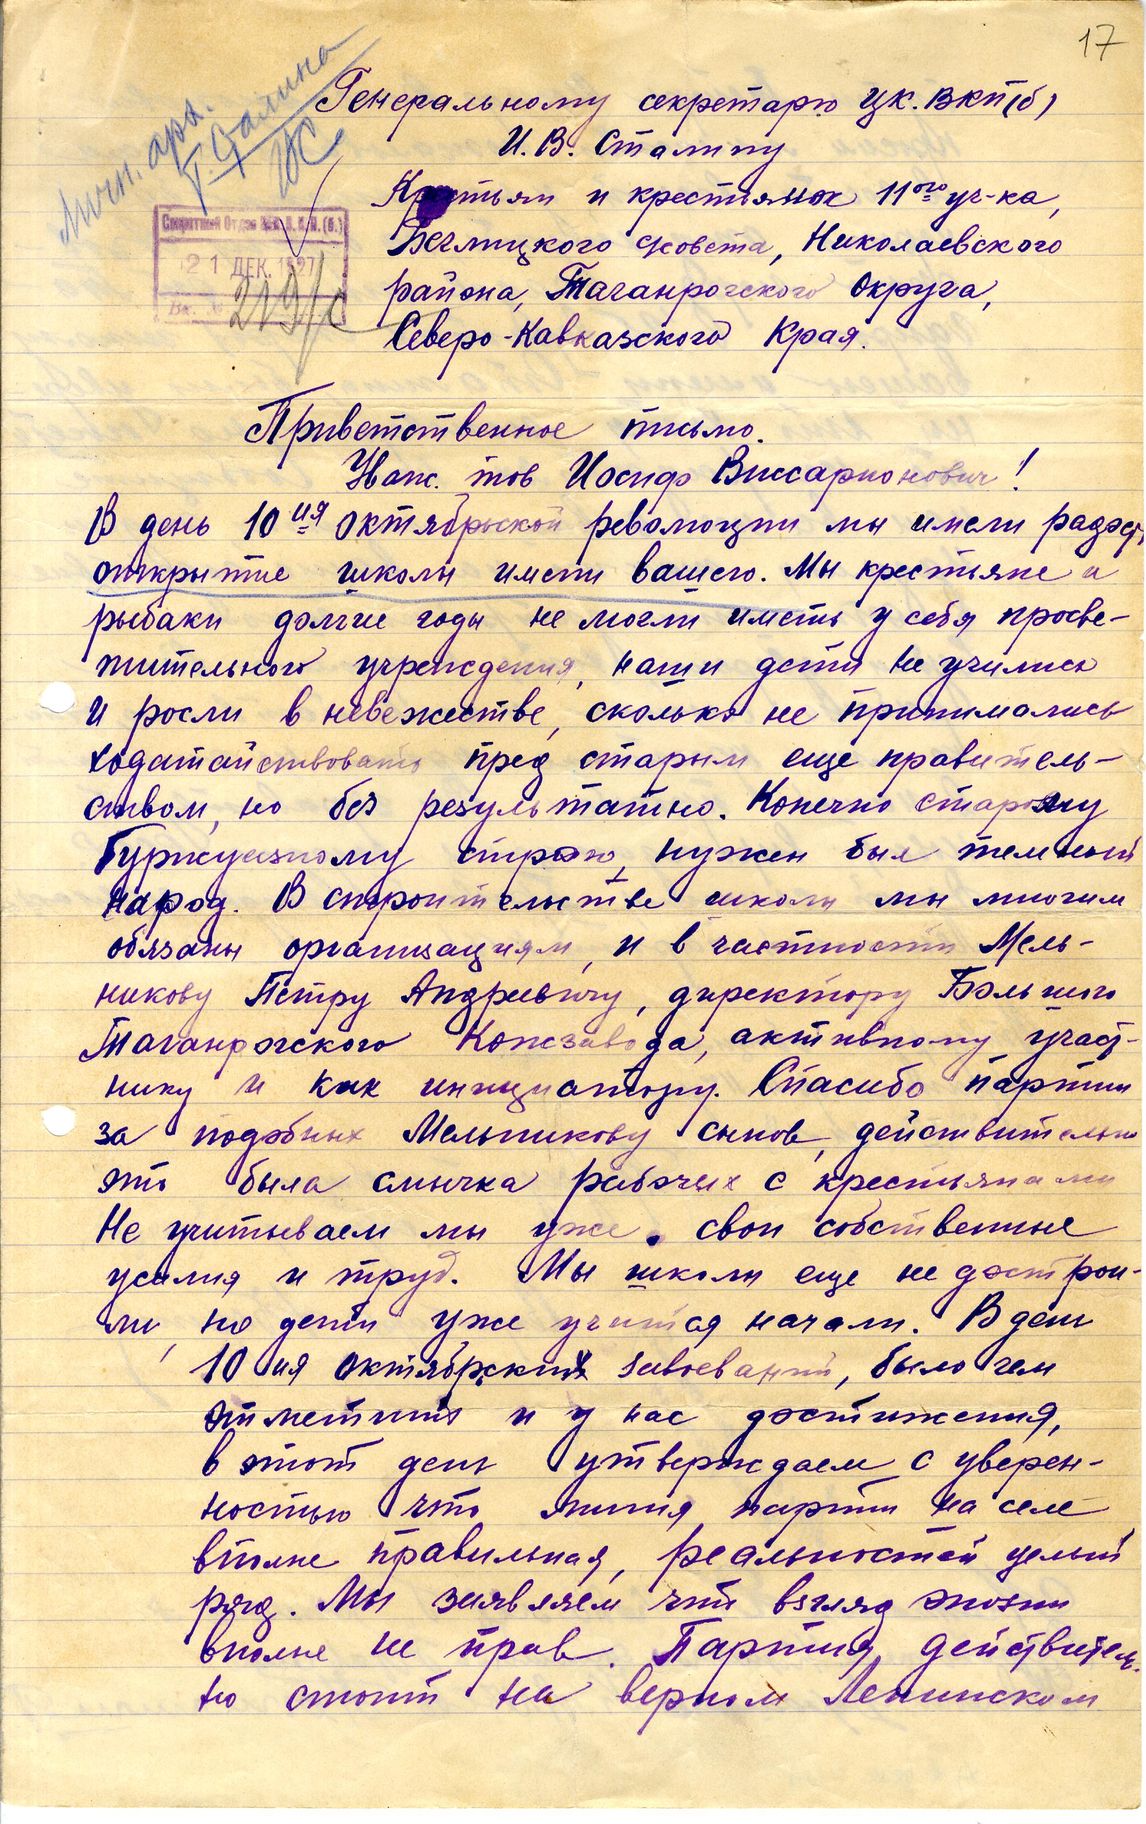 17
Личн. арх.
т. Сталина
Генеральному секретарю ЦК. ВКП(б)
И. В. Сталину
Секретный Отдел ЦК В.К.П.(б.)
21 ДЕК. 1927
Вх. №
219/с
Крстьян и крестьянок 11ого уч-ка,
Беглицкого с/совета, Николаевского
района, Таганрогского Округа,
Северо-Кавказского Края.
Приветственное письмо.
Уваж. тов Иосиф Виссарионович!
В день 10ия Октябрьской революции мы имели радост
открытие школы имени вашего. Мы крестьяне и
рыбаки долгие годы не могли иметь у себя просве-
тительного учреждения, наши дети не учились
и росли в невежестве, сколько не принимались
ходатайствовать пред старым еще правитель-
ством, но без результатно. Конечно старому
Буржуазному строю, нужен был темный
народ. В строительстве школы мы многим
обязаны организациям, и в частности Мель-
никову Петру Андреевичу, директору Большого
Таганрогского Кожзавода, активному участ-
нику и как инициатору. Спасибо партии
за подобных Мельникову сынов, действительно
это была смычка рабочих с крестьянами
Не учитываем мы уже свои собственные
усилия и труд. Мы школы еще не дострои-
ли, но дети уже учится начали. В день
10 ия октябрских завоеваний, было чем
отметить и у нас достижения,
в этот день утверждаем с уверен-
ностью что линия партии на селе
вполне правильная, реальностей целый
ряд. Мы заявляем что взгляд опозии
вполне не прав. Партия действитель-
но стоит на верном Ленинском